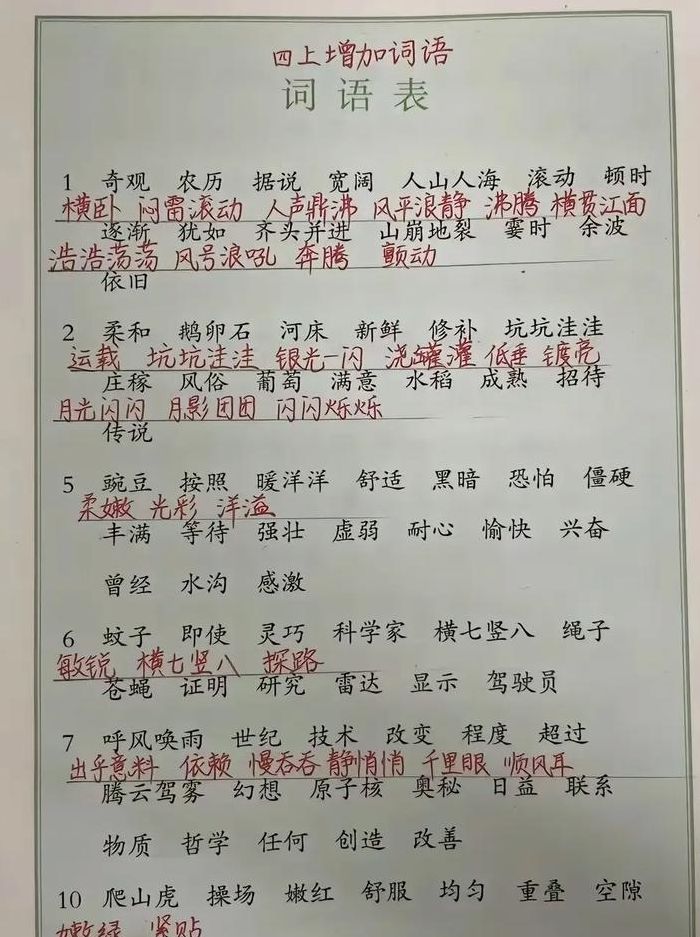 四上增加词语
词语表
1 奇观 农历 据说 宽阔 人山人海 滚动 顿时
横卧 闷雷滚动 人声鼎沸 风平浪静 沸腾 横贯江面
逐渐 犹如 齐头并进 山崩地裂 霎时 余波
浩浩荡荡 风号浪吼 奔腾 颤动
依旧
2 柔和 鹅卵石 河床 新鲜 修补 坑坑洼洼
运载 坑坑洼洼 银光一闪 浇灌 低垂 镀亮
庄稼 风俗 葡萄 满意 水稻 成熟 招待
月光闪闪 月影团团 闪闪烁烁
传说
5 豌豆 按照 暖洋洋 舒适 黑暗 恐怕 僵硬
柔嫩 光彩 洋溢
丰满 等待 强壮 虚弱 耐心 愉快 兴奋
曾经 水沟 感激
6 蚊子 即使 灵巧 科学家 横七竖八 绳子
敏锐 横七竖八 探路
苍蝇 证明 研究 雷达 显示 驾驶员
7 呼风唤雨 世纪 技术 改变 程度 超过
出乎意料 依赖 慢吞吞 静悄悄 千里眼 顺风耳
腾云驾雾 幻想 原子核 奥秘 日益 联系
物质 哲学 任何 创造 改善
10 爬山虎 操场 嫩红 舒服 均匀 重叠 空隙
嫩绿 紧贴